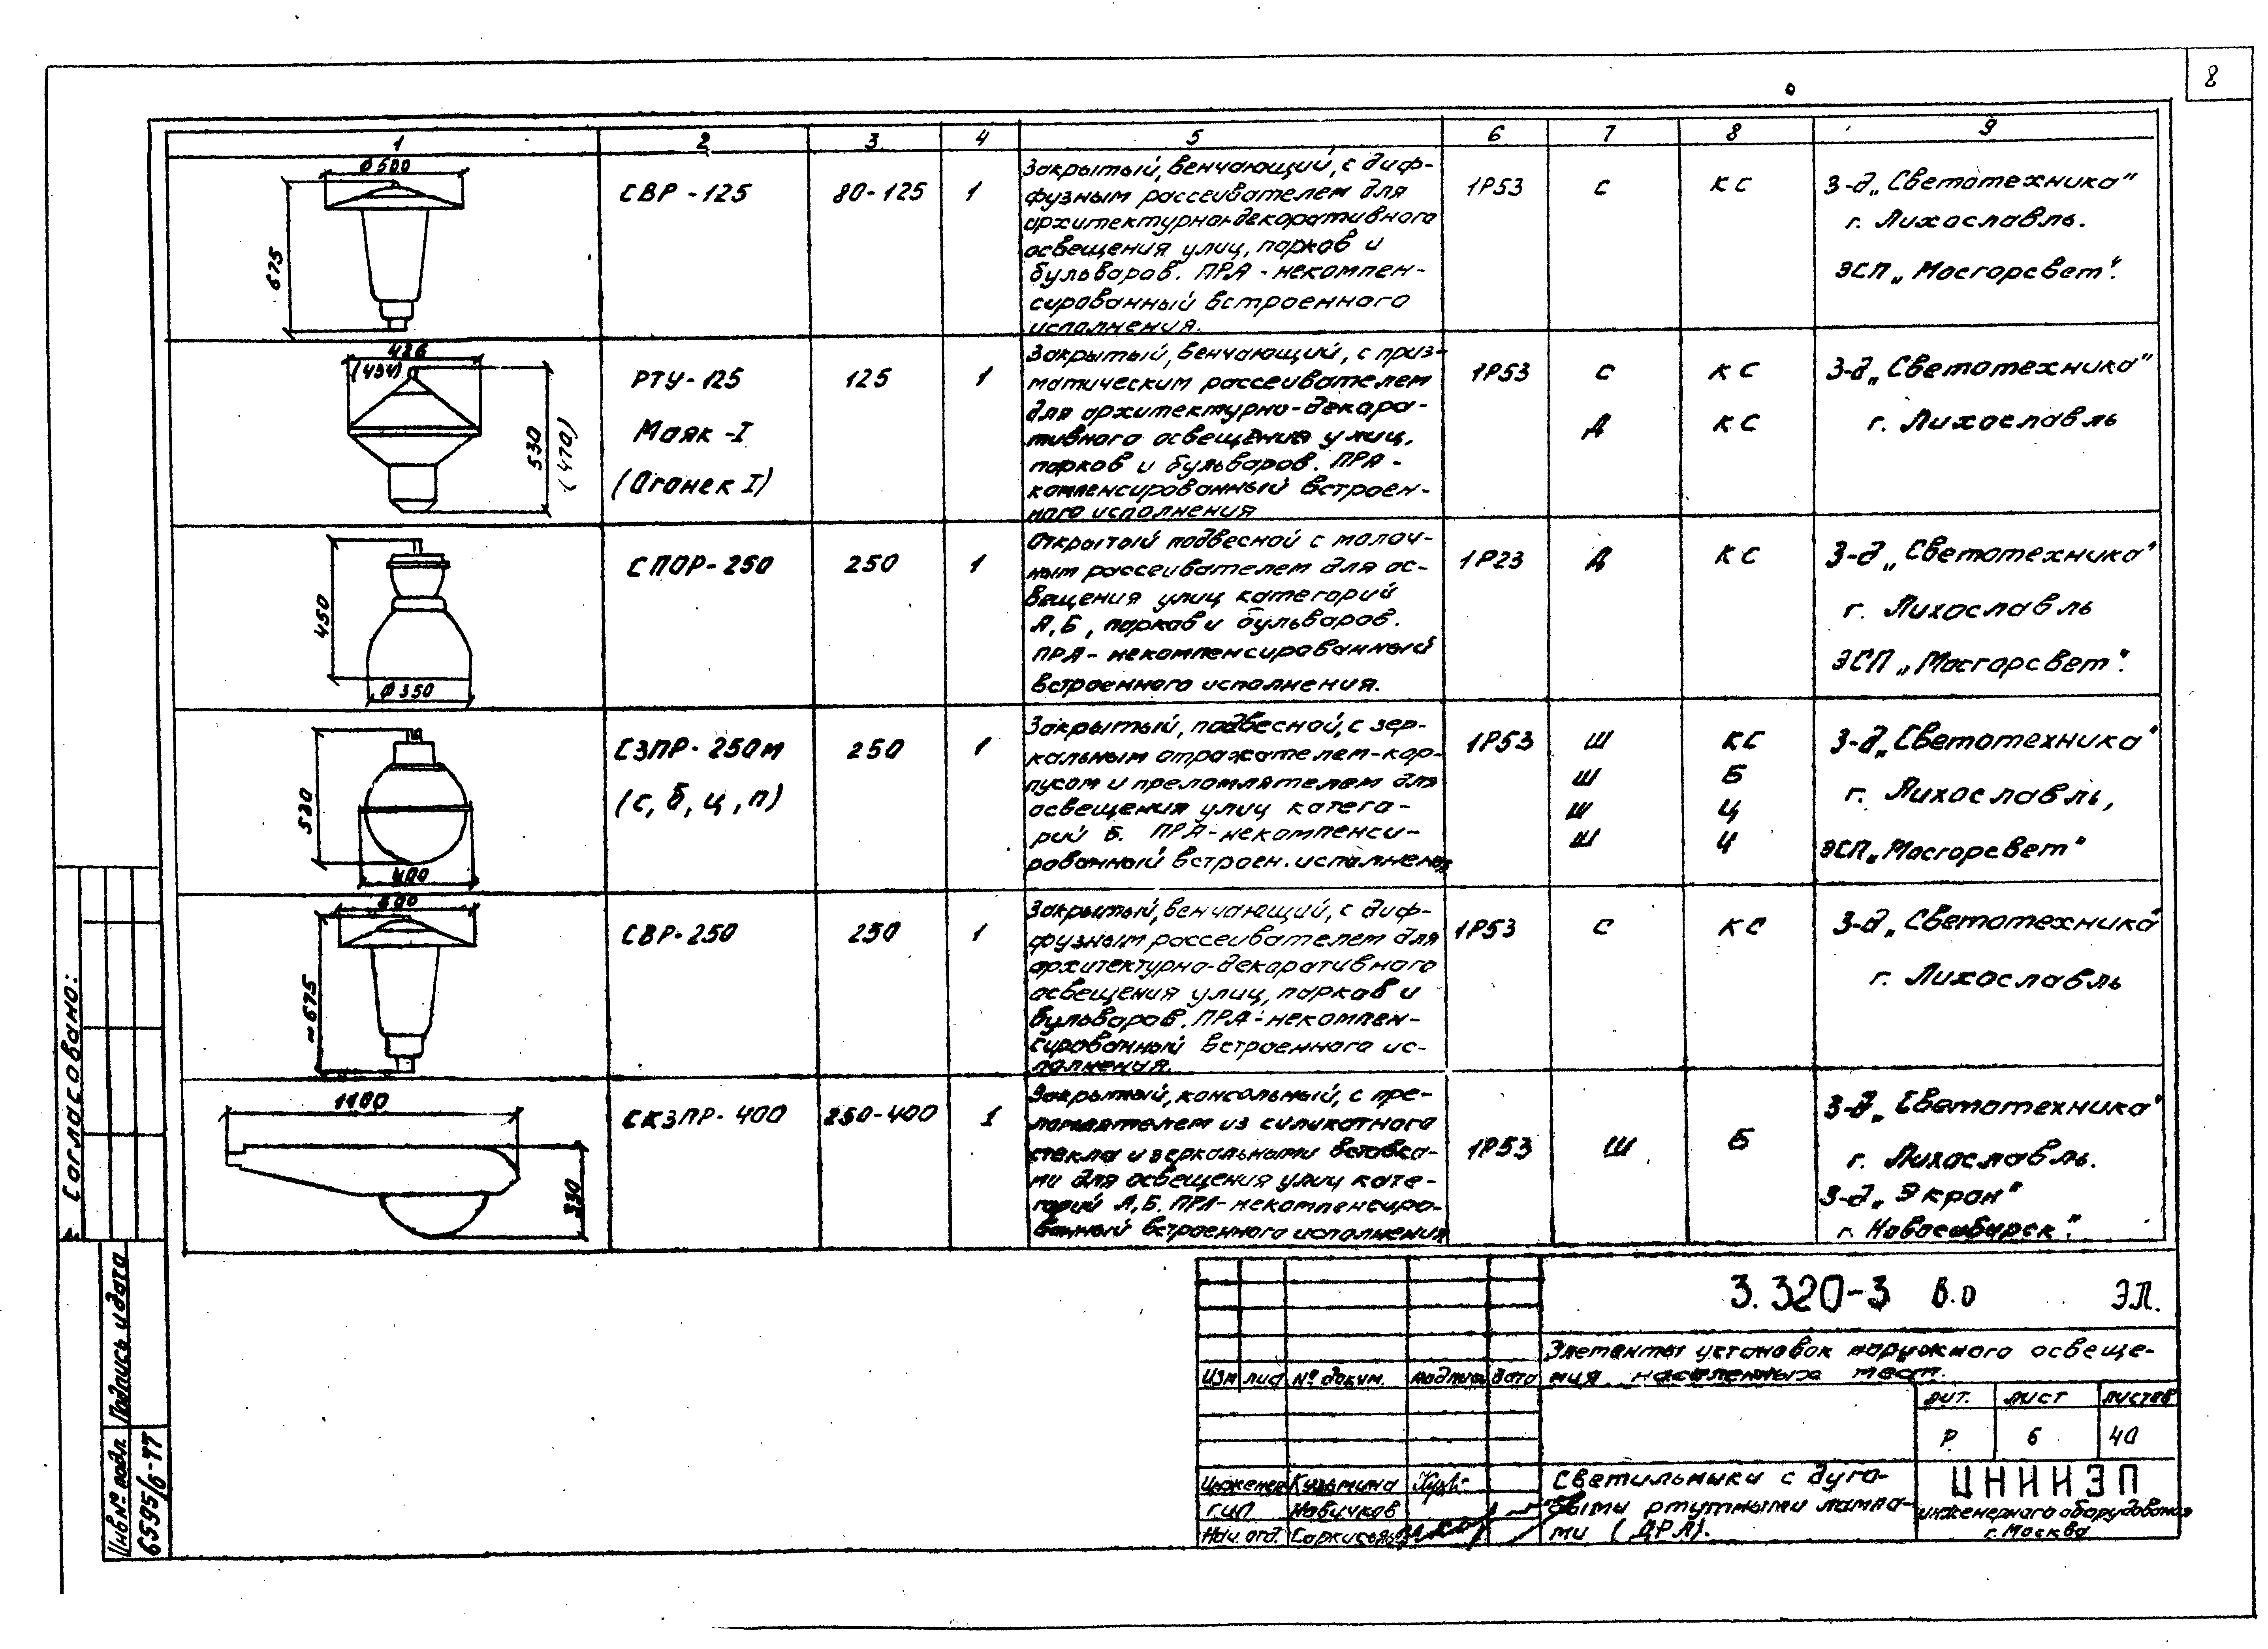 8
1 2 3 4 5 6 7 8 9
Ø500
675
СВР-125
80-125
1
Закрытый, венчающий, с диф-
фузным рассеивателем для
архитектурно-декоративного
освещения улиц, парков и
бульваров. ПРА - некомпен-
сированный встроенного
исполнения.
1Р53
С
КС
З-д „Светотехника"
г. Лихославль.
ЭСП „Мосгорсвет".
426
(434)
530
(470)
РТУ-125
Маяк-I
(Огонек I)
125
1
Закрытый, венчающий, с приз-
матическим рассеивателем
для архитектурно-декора-
тивного освещения улиц,
парков и бульваров. ПРА -
компенсированный встроен-
ного исполнения
1Р53
С
КС
Д
КС
З-д „Светотехника"
г. Лихославль
450
Ø350
СПОР-250
250
1
Открытый подвесной с молоч-
ным рассеивателем для ос-
вещения улиц категорий
А, Б, парков и бульваров.
ПРА - некомпенсированный
встроенного исполнения.
1Р23
Д
КС
З-д „Светотехника"
г. Лихославль
ЭСП „Мосгорсвет".
530
400
СЗПР-250м
(с, б, ц, п)
250
1
Закрытый, подвесной, с зер-
кальным отражателем-кор-
пусом и преломлятелем для
освещения улиц катего-
рий Б. ПРА-некомпенси-
рованный встроен. исполнения
1Р53
Ш
КС
Ш
Б
Ш
Ц
Ш
З-д „Светотехника"
г. Лихославль,
ЭСП „Мосгорсвет"
~675
СВР-250
250
1
Закрытый, венчающий, с диф-
фузным рассеивателем для
архитектурно-декоративного
освещения улиц, парков и
бульваров. ПРА - некомпен-
сированный встроенного ис-
полнения.
1Р53
С
КС
З-д „Светотехника"
г. Лихославль
1100
330
СКЗПР-400
250-400
1
Закрытый, консольный, с пре-
ломлятелем из силикатного
стекла и зеркальными вставка-
ми для освещения улиц кате-
горий А, Б. ПРА - некомпенсиро-
ванный встроенного исполнения
1Р53
Ш
Б
З-д „Светотехника"
г. Лихославль.
З-д „Экран"
г. Новосибирск".
Согласовано:
Подпись и дата
Инв № подл.
6595/6-77
3.320-3 В.О ЭЛ.
Элементы установок наружного освеще-
ния населенных мест.
Изм Лист № докум. Подпись Дата
Лит. Лист Листов
Р 6 40
Инженер Кузьмина
ГИП Новичков
Нач. отд. Саркисян
Светильники с дуго-
выми ртутными лампа-
ми (ДРЛ).
ЦНИИЭП
инженерного оборудования
г. Москва